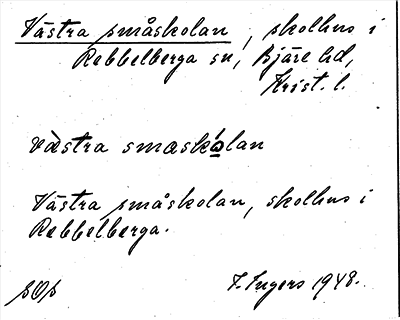 Västra småskolan, skolhus i
Rebbelberga sn, Bjäre hd,
Krist. l.
västra smaskolan
Västra småskolan, skolhus i
Rebbelberga.
I. Ingers 1948.